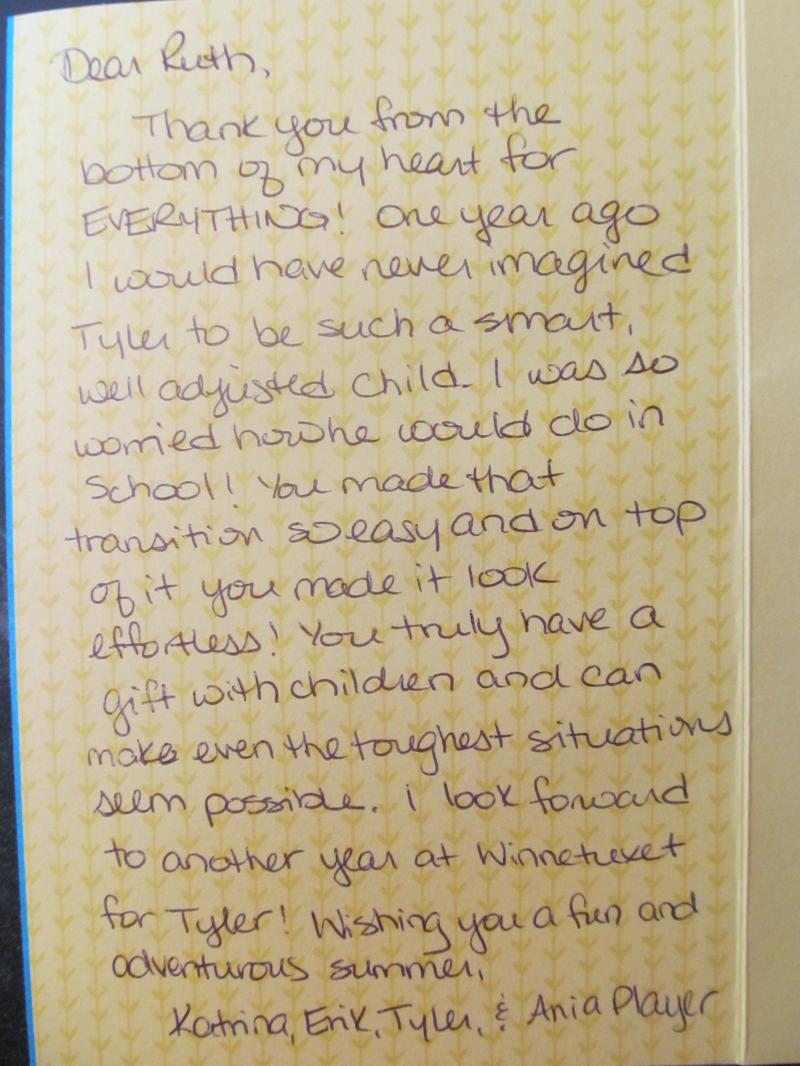 Dear Ruth,
Thank you from the
bottom of my heart for
EVERYTHING! One year ago
I would have never imagined
Tyler to be such a smart,
well adjusted child. I was so
worried how he would do in
School! You made that
transition so easy and on top
of it you made it look
effortless! You truly have a
gift with children and can
make even the toughest situations
seem possible. I look forward
to another year at Winnetuxet
for Tyler! Wishing you a fun and
adventurous summer,
Katrina, Erik, Tyler, & Ania Player